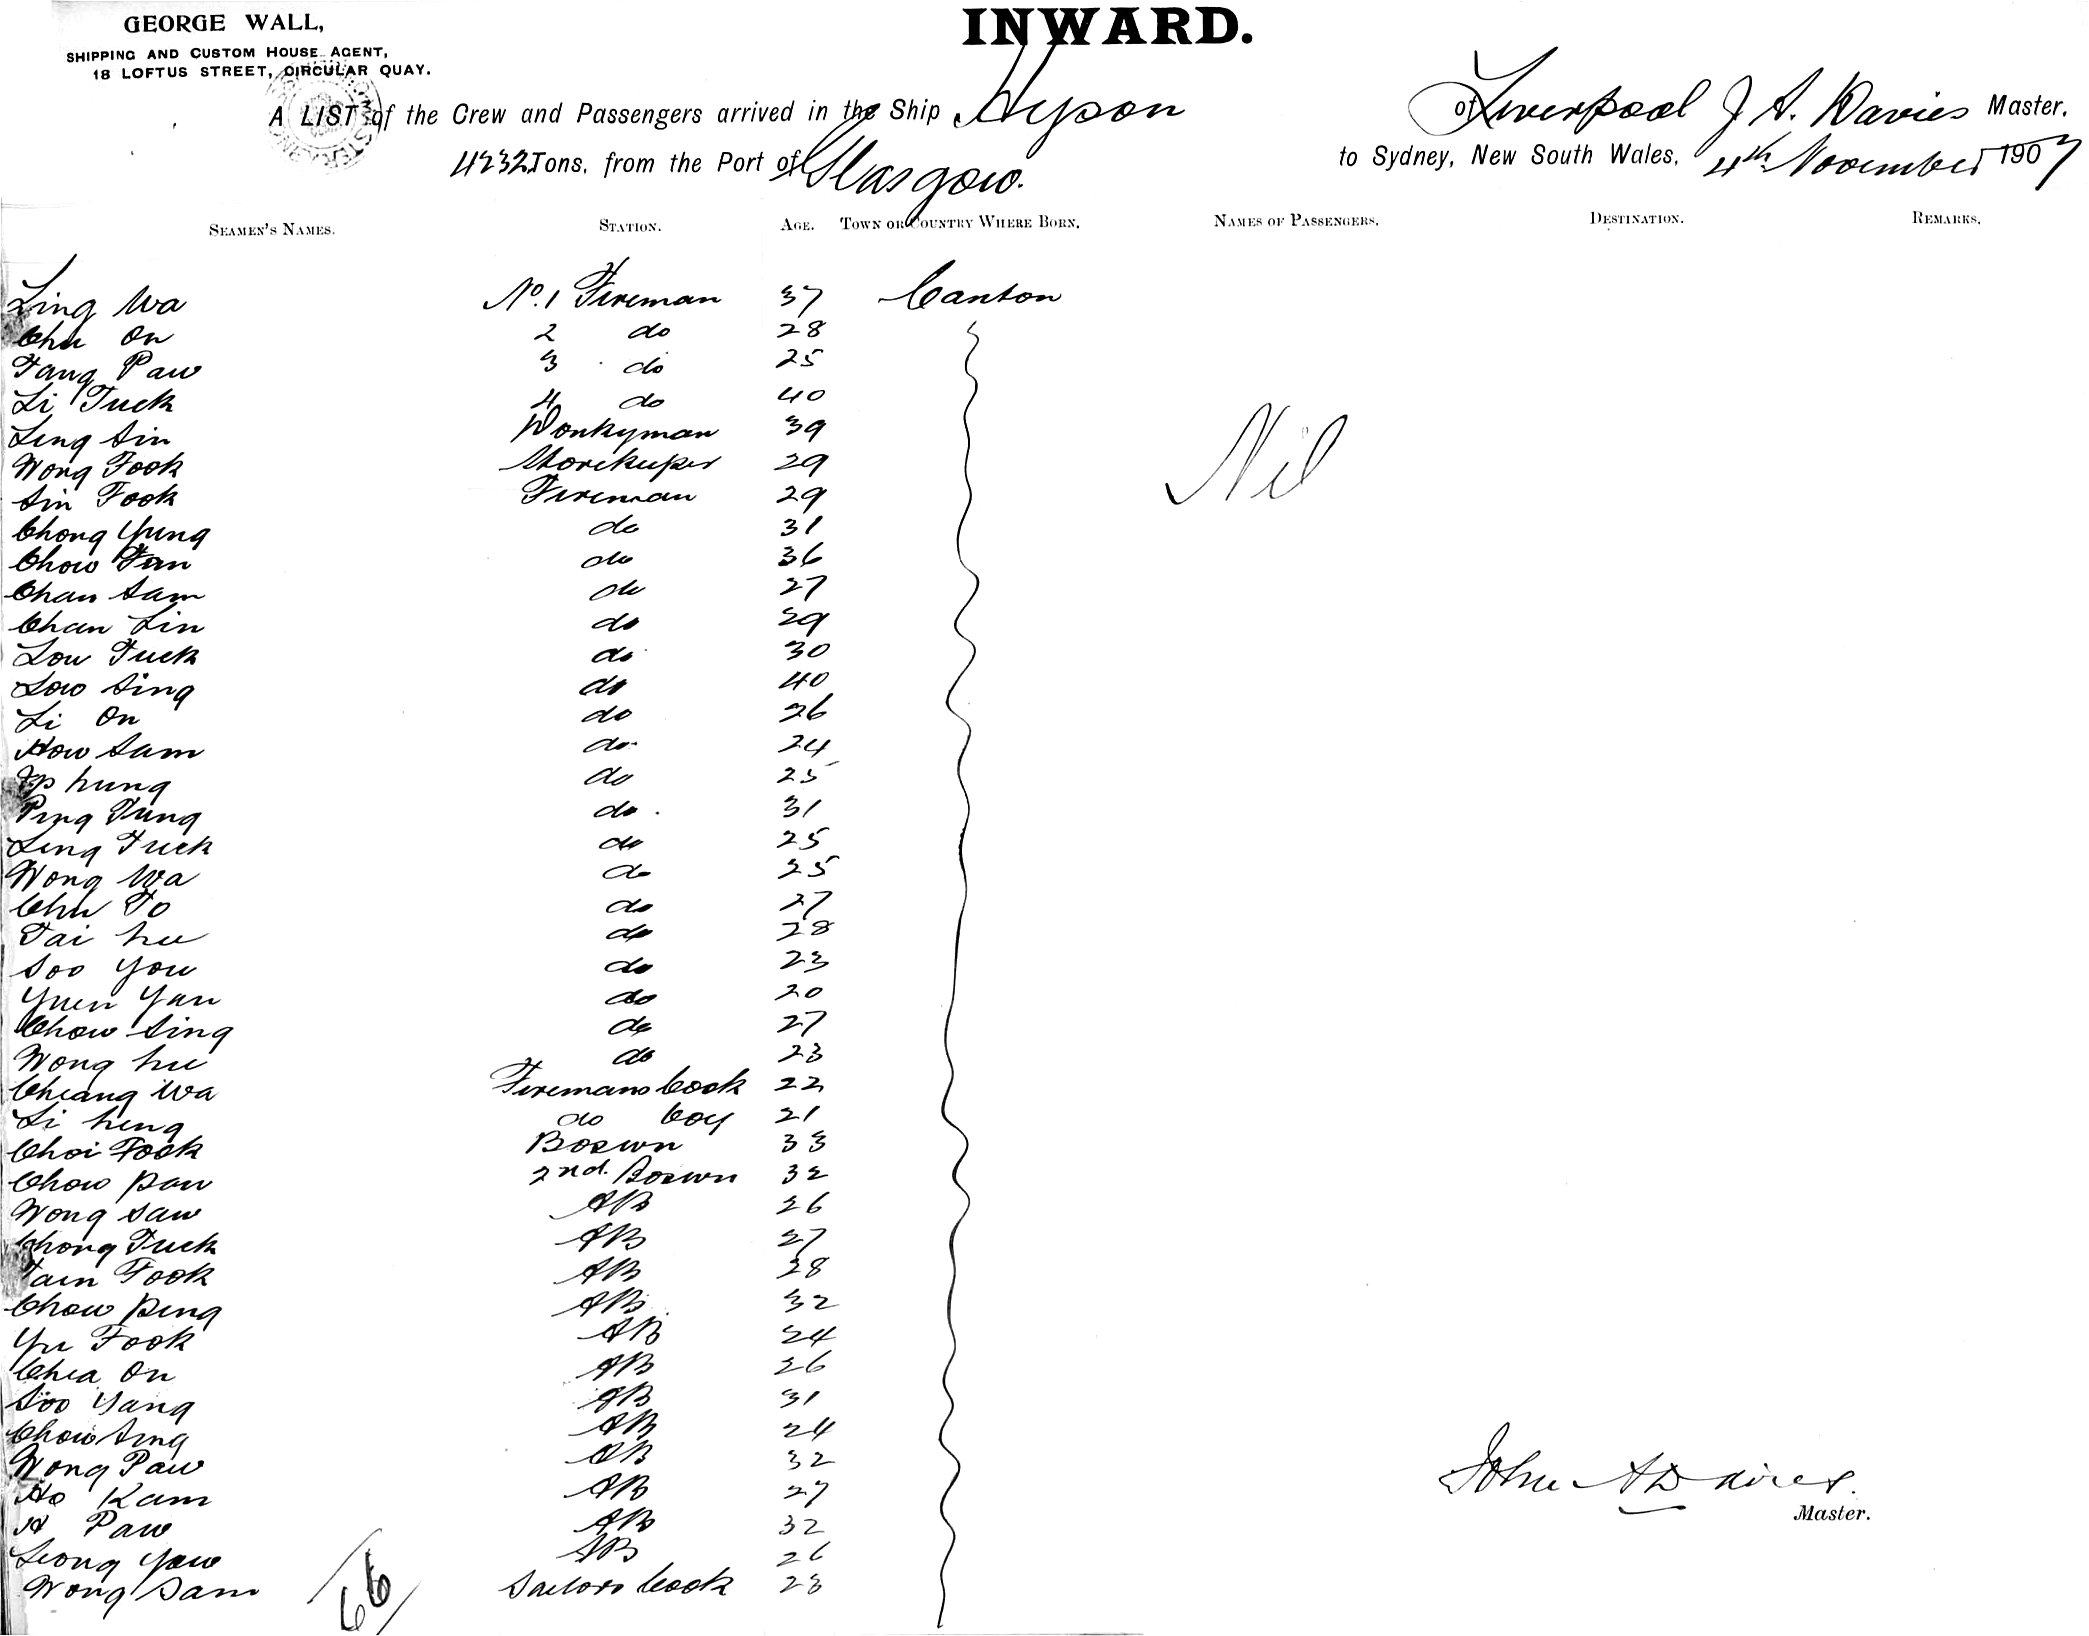 GEORGE WALL,
SHIPPING AND CUSTOM HOUSE AGENT,
18 LOFTUS STREET, CIRCULAR QUAY.
INWARD.
A LIST of the Crew and Passengers arrived in the Ship Hyson of Liverpool J A. Davies Master,
4232 Tons, from the Port of Glasgow. to Sydney, New South Wales, 4th November 1907
SEAMEN'S NAMES. STATION. AGE. TOWN OR COUNTRY WHERE BORN, NAMES OF PASSENGERS, DESTINATION. REMARKS,
Ling Wa No. 1 Fireman 37 Canton
Chu On 2 do 28
Tang Paw 3 do 25
Li Tuck 4 do 40
Ling Sin Donkyman 39
Wong Fook Storekeeper 29
Nil
Sin Fook Fireman 29
Chong Yung do 31
Chow Tan do 36
Chan Sam do 27
Chan Lin do 29
Lou Tuck do 30
Low Sing do 40
Li On do 26
How Sam do 24
hung do 25
Ping Tung do 31
Ling Tuck do 25
Wong Wa do 25
Chu To do 27
Tai hee do 28
Soo You do 23
Yuen Yan do 20
Chow Sing do 27
Wong hee do 23
Cheang Wa Firemans Cook 22
Li heng do boy 21
Choi Fook Boswn 33
Chow Pow 2nd. Boswn 32
Wong Saw AB 26
Chong Tuck AB 27
Fook AB 28
Chow Ping AB 32
Yu Fook AB 24
Chea On AB 26
Soo Yang AB 31
Chow Sing AB 24
Wong Paw AB 32
Ho Kam AB 27
Paw AB 32
Leong Yow AB 26
Wong Sam Sailors Cook 28
66
John A Davies.
Master.